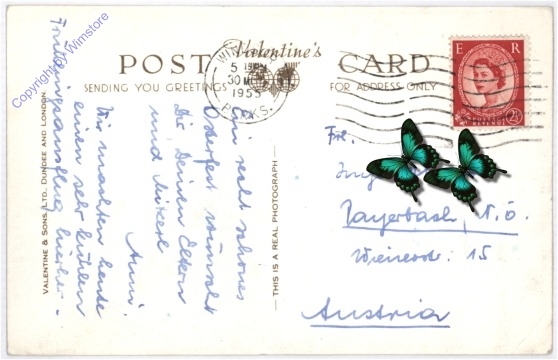 Copyright by: Winstore
POST Valentine's CARD
SENDING YOU GREETINGS
FOR ADDRESS ONLY
5
30 M
1955
E R
2½
VALENTINE & SONS, LTD. DUNDEE AND LONDON.
THIS IS A REAL PHOTOGRAPH
Ein recht schönes
Osterfest wünscht
Dir Deinen Eltern
und
Anni.
Wir machten heute
einen sehr kühlen
Frl.
Payerbach, N.Ö.
Wienerstr. 15
Austria